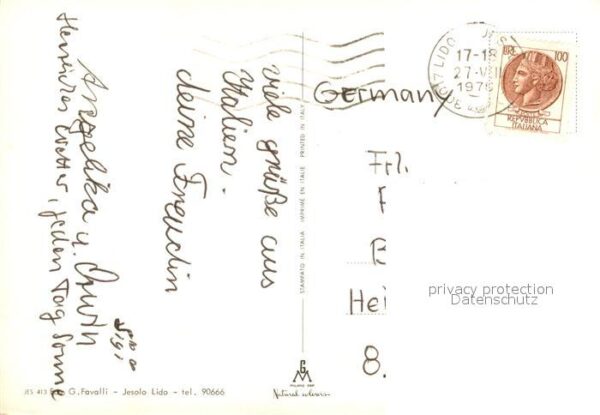 Viele grüße aus
Italien.
deine Freundin
Angelika u.
Herrliches Wetter, jeden Tag Sonne
Germany
Frl.
Hei
8.
privacy protection
Datenschutz
LIDO
17-18
27-VIII
1976
LIRE 100
REPVBBLICA
ITALIANA
STAMPATO IN ITALIA IMPRIMÉ EN ITALIE PRINTED IN ITALY
JES 413 G. Favalli - Jesolo Lido - tel. 90666
GM
MILANO
Natural colours